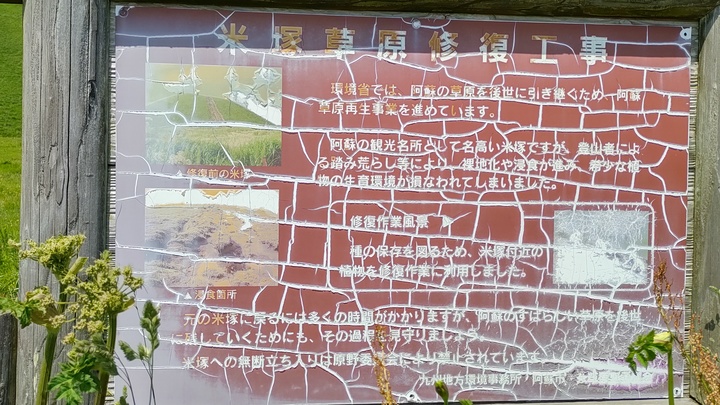 米塚草原修復工事
環境省では、阿蘇の草原を後世に引き継ぐため、阿蘇
草原再生事業を進めています。
阿蘇の観光名所として名高い米塚ですが、登山者によ
る踏み荒らし等により、裸地化や浸食が進み、希少な植
物の生育環境が損なわれてしまいました。
▲修復前の米塚
修復作業風景 ▶
種の保存を図るため、米塚付近の
植物を修復作業に利用しました。
▲浸食箇所
元の米塚に戻るには多くの時間がかかりますが、阿蘇のすばらしい草原を後世
に残していくためにも、その過程を見守りましょう。
米塚への無断立ち入りは原野委員会により禁止されています。
九州地方環境事務所・阿蘇市・